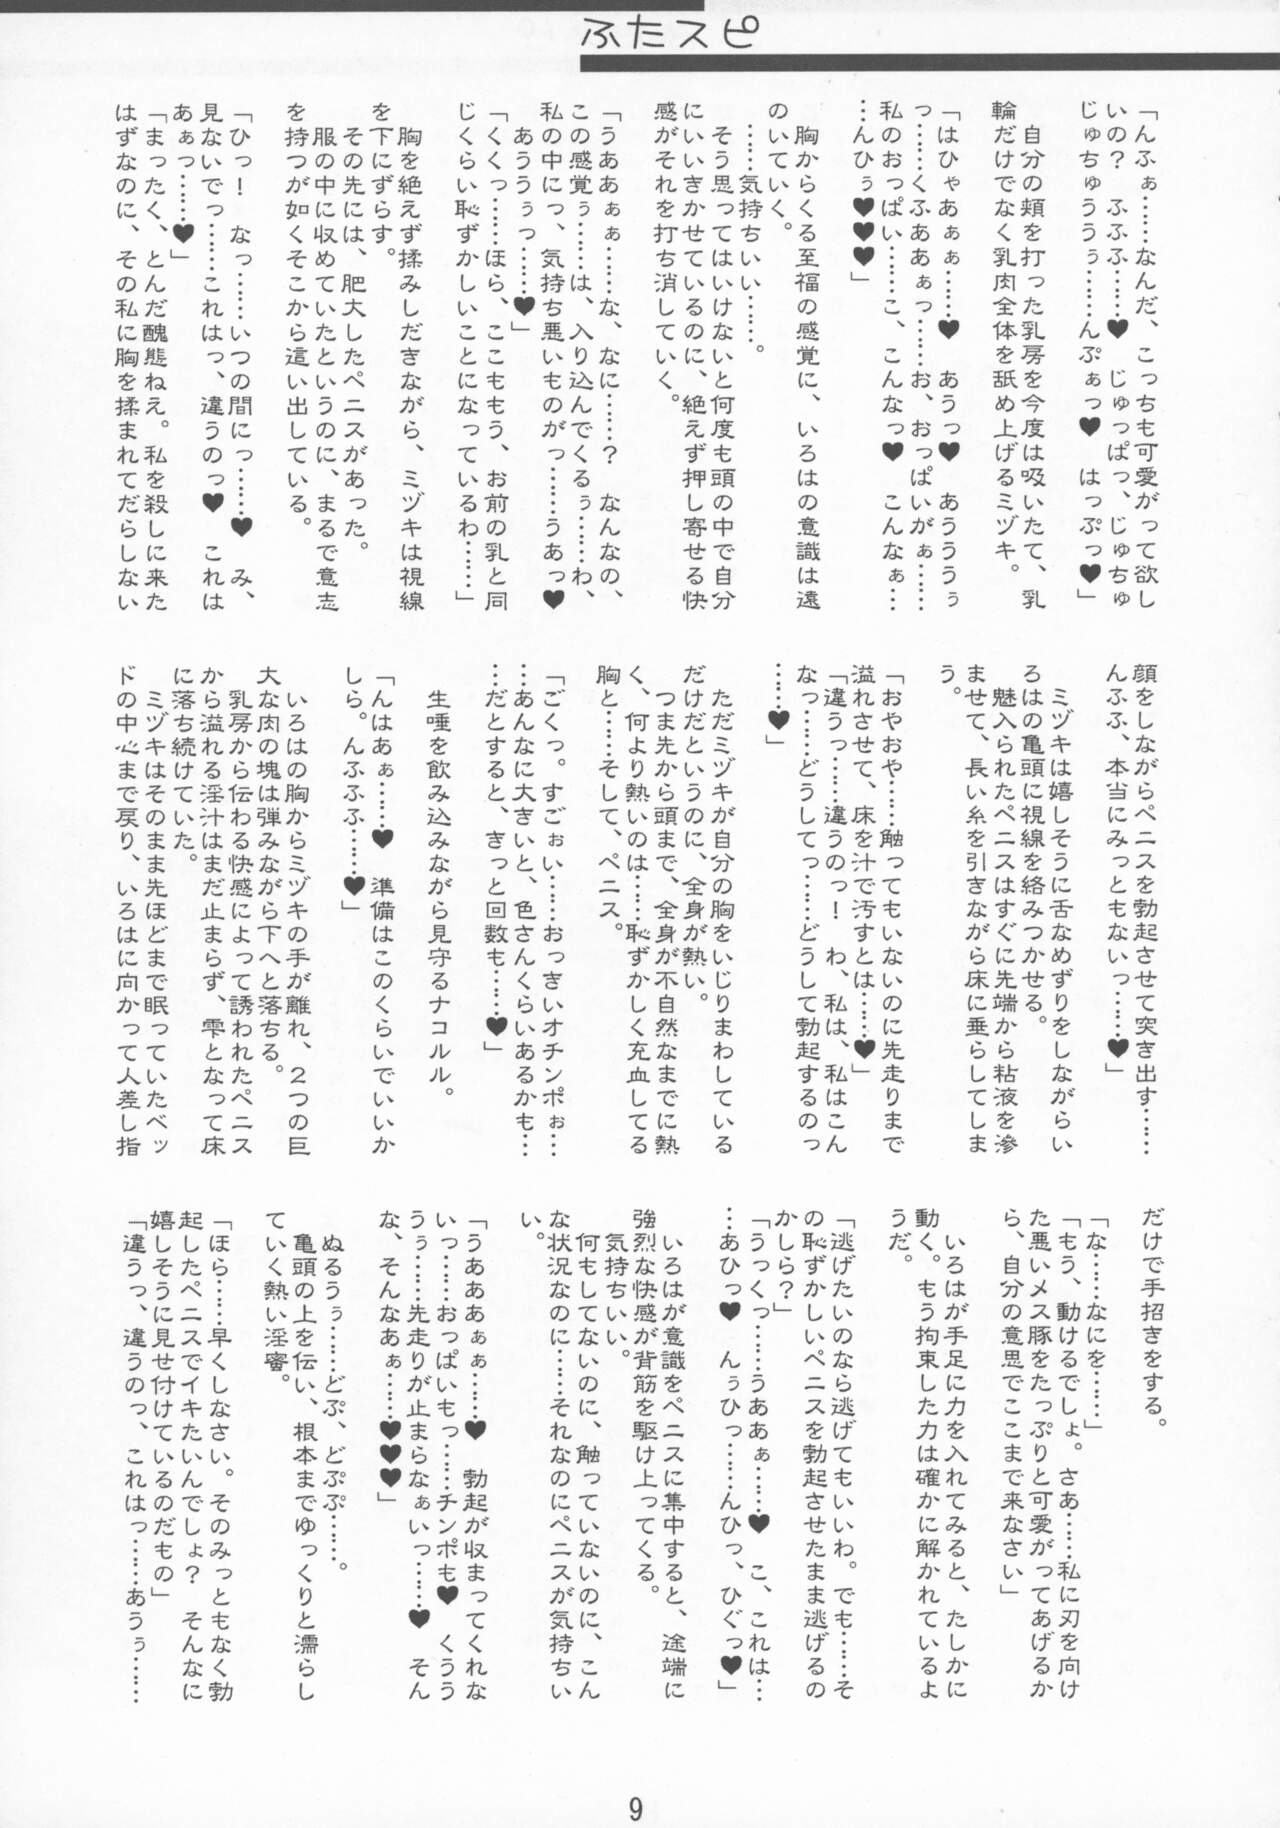 ふたスピ
「んふぁ……なんだ、こっちも可愛がって欲し
いの？　ふふふ……♥　じゅっぱっ、じゅちゅ
じゅちゅううぅ……んぷぁっ♥　はっぷっ♥」
自分の頬を打った乳房を今度は吸いたて、乳
輪だけでなく乳肉全体を舐め上げるミヅキ。
「はひゃあぁぁ……♥　あうっ♥　あうううぅ
っ……くふああぁっ……お、おっぱいがぁ……
私のおっぱい……こ、こんなっ♥　こんなぁ…
…んひぅ♥♥♥」
胸からくる至福の感覚に、いろはの意識は遠
のいていく。
……気持ちいい……。
そう思ってはいけないと何度も頭の中で自分
にいいきかせているのに、絶えず押し寄せる快
感がそれを打ち消していく。
「うああぁぁ……な、なに……？　なんなの、
この感覚ぅ……は、入り込んでくるぅ……わ、
私の中にっ、気持ち悪いものがっ……うあっ♥
あううぅっ……♥」
「くくっ……ほら、ここももう、お前の乳と同
じくらい恥ずかしいことになっているわ……」
胸を絶えず揉みしだきながら、ミヅキは視線
を下にずらす。
その先には、肥大したペニスがあった。
服の中に収めていたというのに、まるで意志
を持つが如くそこから這い出している。
「ひっ！　なっ……いつの間にっ……♥　み、
見ないでっ……これはっ、違うのっ♥　これは
あぁっ……♥」
「まったく、とんだ醜態ねえ。私を殺しに来た
はずなのに、その私に胸を揉まれてだらしない
顔をしながらペニスを勃起させて突き出す……
んふふ、本当にみっともないっ……♥」
ミヅキは嬉しそうに舌なめずりをしながらい
ろはの亀頭に視線を絡みつかせる。
魅入られたペニスはすぐに先端から粘液を滲
ませて、長い糸を引きながら床に垂らしてしま
う。
「おやおや……触ってもいないのに先走りまで
溢れさせて、床を汁で汚すとは……♥」
「違うっ……違うのっ！　わ、私は、私はこん
なっ……どうしてっ……どうして勃起するのっ
……♥」
ただミヅキが自分の胸をいじりまわしている
だけだというのに、全身が熱い。
つま先から頭まで、全身が不自然なまでに熱
く、何より熱いのは……恥ずかしく充血してる
胸と……そして、ペニス。
「ごくっ。すごぉい……おっぎいオチンポぉ…
…あんなに大きいと、色さんくらいあるかも…
…だとすると、きっと回数も……♥」
生唾を飲み込みながら見守るナコルル。
「んはあぁ……♥　準備はこのくらいでいいか
しら。んふふふ……♥」
いろはの胸からミヅキの手が離れ、２つの巨
大な肉の塊は弾みながら下へと落ちる。
乳房から伝わる快感によって誘われたペニス
から溢れる淫汁はまだ止まらず、雫となって床
に落ち続けていた。
ミヅキはそのまま先ほどまで眠っていたベッ
ドの中心まで戻り、いろはに向かって人差し指
だけで手招きをする。
「な……なにを……」
「もう、動けるでしょ。さあ……私に刃を向け
た悪いメス豚をたっぷりと可愛がってあげるか
ら、自分の意思でここまで来なさい」
いろはが手足に力を入れてみると、たしかに
動く。もう拘束した力は確かに解かれているよ
うだ。
「逃げたいのなら逃げてもいいわ。でも……そ
の恥ずかしいペニスを勃起させたまま逃げるの
かしら？」
「うっくっ……うああぁ……♥　こ、これは…
…あひっ♥　んぅひっ……んひっ、ひぐっ♥」
いろはが意識をペニスに集中すると、途端に
強烈な快感が背筋を駆け上ってくる。
気持ちいい。
何もしてないのに、触っていないのに、こん
な状況なのに……それなのにペニスが気持ちい
い。
「うああぁぁ……♥　勃起が収まってくれな
いっ……おっぱいもっ……チンポも♥　くうう
うぅ……先走りが止まらなぁいっ……♥　そん
な、そんなあぁ……♥♥♥」
ぬるうぅ……どぷ、どぷぷ……。
亀頭の上を伝い、根本までゆっくりと濡らし
ていく熱い淫蜜。
「ほら……早くしなさい。そのみっともなく勃
起したペニスでイキたいんでしょ？　そんなに
嬉しそうに見せ付けているのだもの」
「違うっ、違うのっ、これはっ……あうぅ……
9